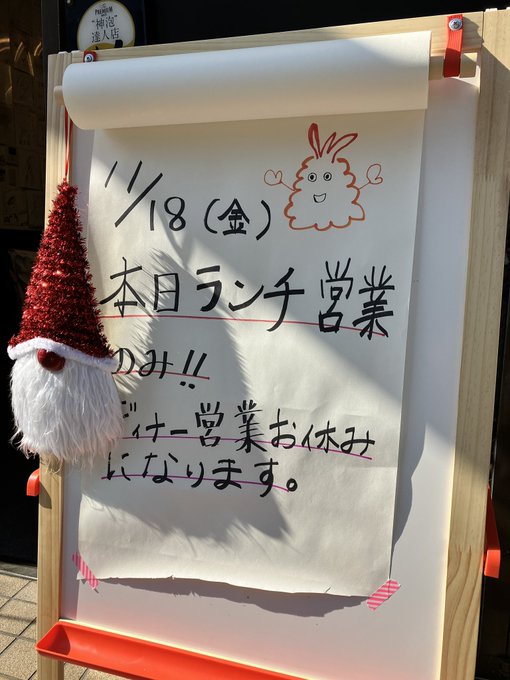 PREMIUM
"神泡"
達人店
11/18(金)
本日ランチ営業
のみ!!
ディナー営業お休み
になります。